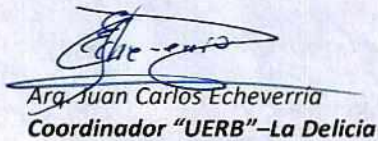 Arq. Juan Carlos Echeverría
Coordinador "UERB"–La Delicia